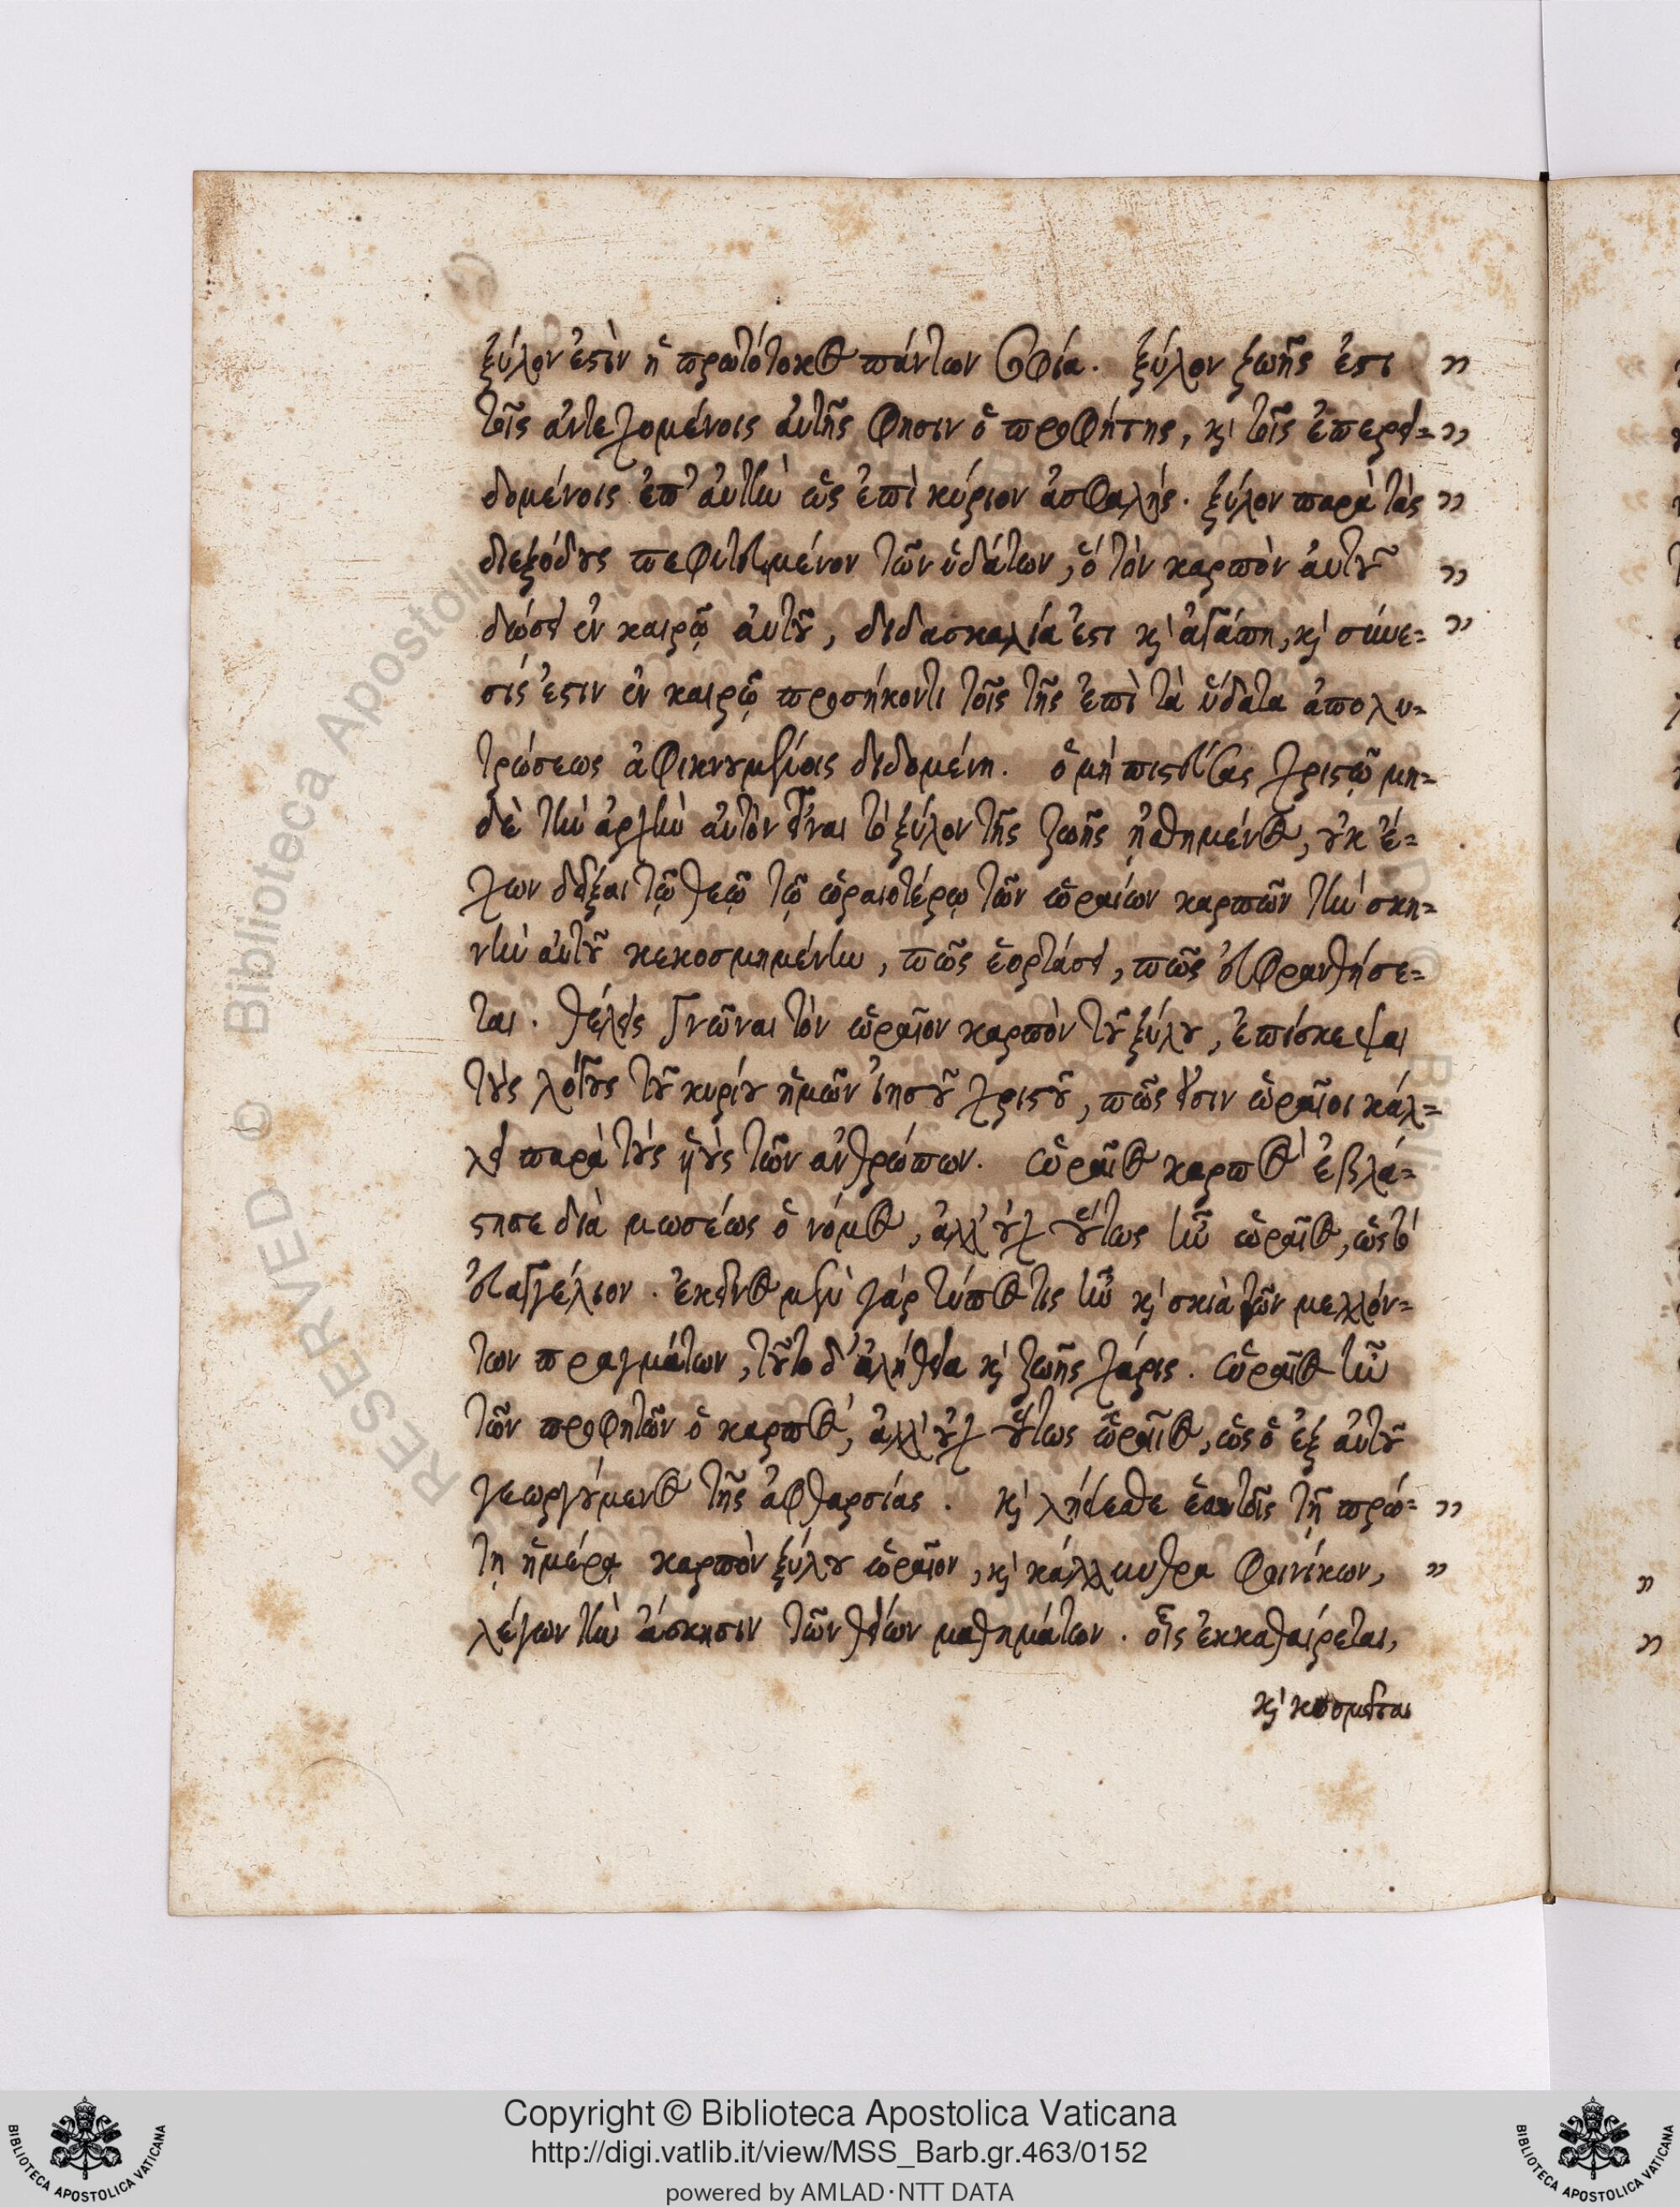 ξύλον ἐστὶν ἡ πρωτότοκος πάντων σοφία. ξύλον ζωῆς ἐστι „
τοῖς ἀντεχομένοις αὐτῆς φησιν ὁ προφήτης, κὶ τοῖς ἐπερει= „
δομένοις ἐπ' αὐτὴν ὡς ἐπὶ κύριον ἀσφαλής. ξύλον παρὰ τὰς „
διεξόδους πεφυτευμένον τῶν ὑδάτων, ὃ τὸν καρπὸν αὐτοῦ „
δώσει ἐν καιρῷ αὐτοῦ, διδασκαλία ἐστι κὶ ἀγάπη, κὶ σύνε= „
σίς ἐστιν ἐν καιρῷ προσήκοντι τοῖς τῆς ἐπὶ τὰ ὕδατα ἀπολυ=
τρώσεως ἀφικνουμένοις διδομένη. ὁ μὴ πιστεύσας χριστῷ μη=
δὲ τὴν ἀρχὴν αὐτὸν εἶναι τὸ ξύλον τῆς ζωῆς ᾐσθημένος, οὐκ ἔ=
χων δεῖξαι τῷ θεῷ τῷ ὡραιοτέρῳ τῶν ὡραίων καρπῶν τὴν σκη=
νὴν αὐτοῦ κεκοσμημένην, πῶς ἑορτάσει, πῶς εὐφρανθήσε=
ται. θέλεις γνῶναι τὸν ὡραῖον καρπὸν τοῦ ξύλου, ἐπίσκεψαι
τοὺς λόγους τοῦ κυρίου ἡμῶν ἰησοῦ χριστοῦ, πῶς εἰσιν ὡραῖοι κάλ=
λει παρὰ τοὺς ὑιοὺς τῶν ἀνθρώπων. ὡραῖος καρπὸς ἐβλά=
στησε διὰ μωσέως ὁ νόμος, ἀλλ' οὐχ οὕτως ἦν ὡραῖος, ὡς τὸ
εὐαγγέλιον. ἐκεῖνος μὲν γάρ τύπος τις ἦν κὶ σκιὰ τῶν μελλόν=
των πραγμάτων, τοῦτο δ' ἀλήθεια κὶ ζωῆς χάρις. ὡραῖος ἦν
τῶν προφητῶν ὁ καρπὸς, ἀλλ' οὐχ οὕτως ὡραῖος, ὡς ὁ ἐξ αὐτοῦ
γεωργούμενος τῆς ἀφθαρσίας. κὶ λήψεσθε ἑαυτοῖς τῇ πρώ= „
τῃ ἡμέρᾳ καρπὸν ξύλου ὡραῖον, κὶ κάλλυνθρα φοινίκων, „
λέγων τὴν ἄσκησιν τῶν θείων μαθημάτων. οἷς ἐκκαθαίρεται,
κὶ κοσμεῖται
RESERVED © Biblioteca Apostolica
Copyright © Biblioteca Apostolica Vaticana
http://digi.vatlib.it/view/MSS_Barb.gr.463/0152
powered by AMLAD·NTT DATA
BIBLIOTECA APOSTOLICA VATICANA
BIBLIOTECA APOSTOLICA VATICANA